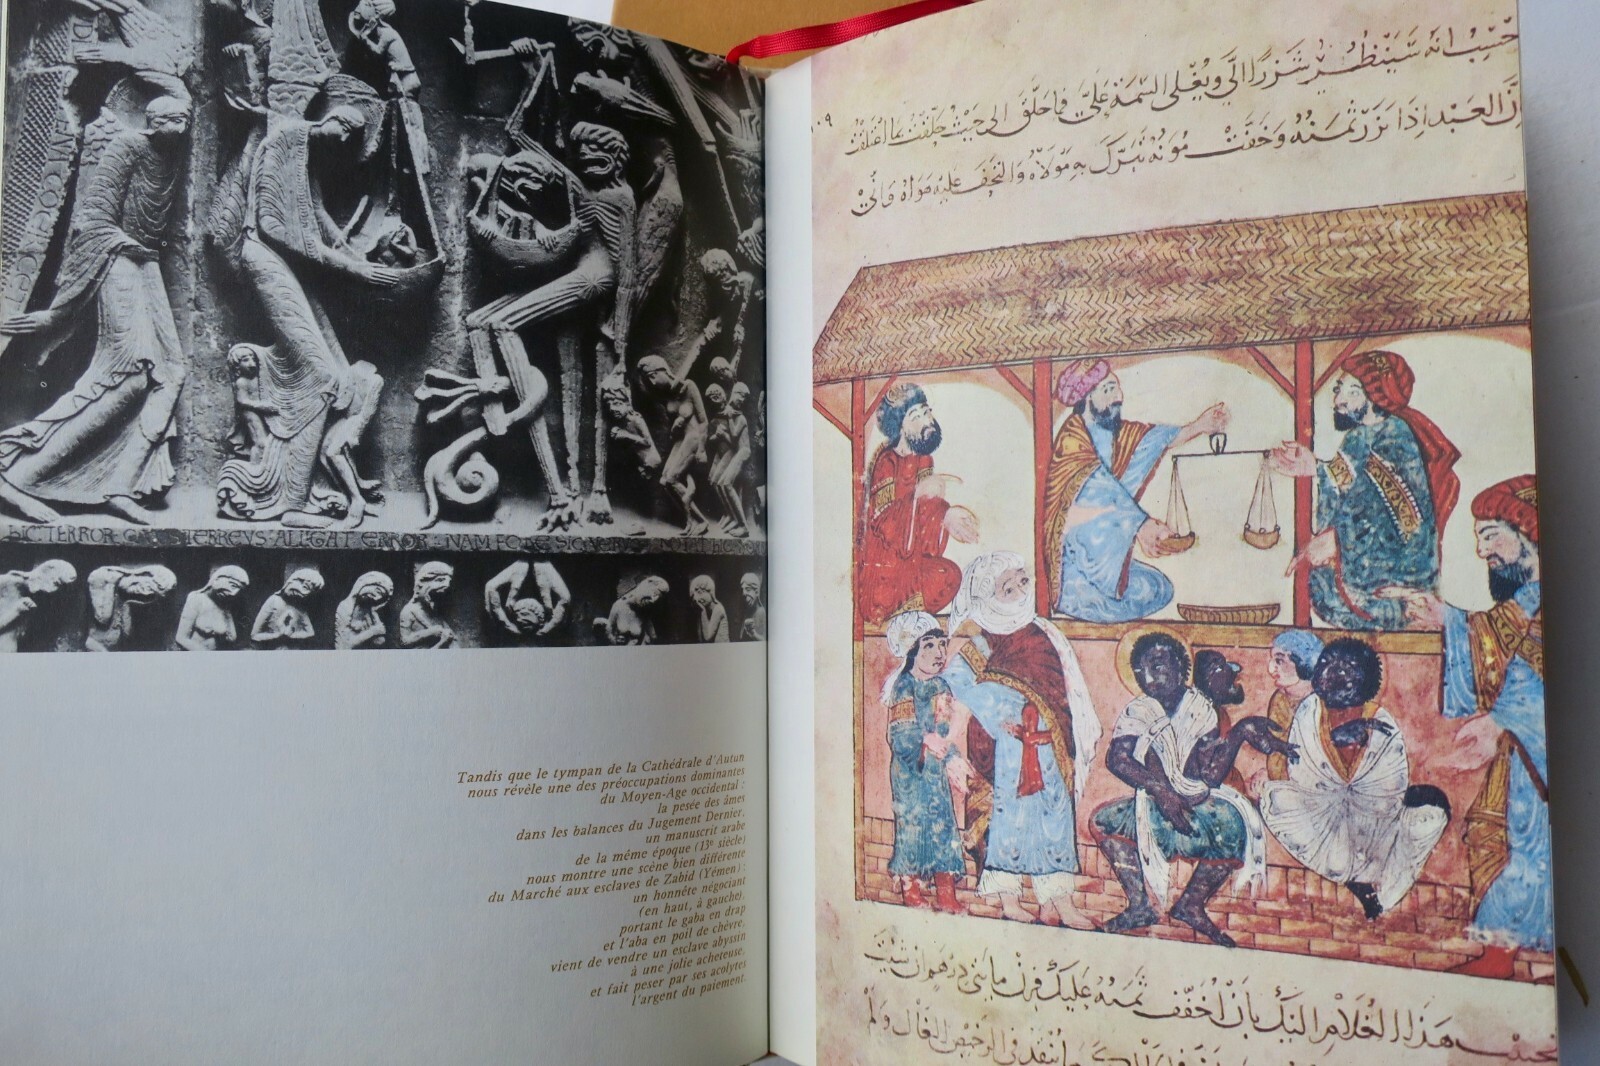 HIC TERROR
ALLIGAT ERROR · NAM FORE SIC VERUM
Tandis que le tympan de la Cathédrale d'Autun
nous révèle une des préoccupations dominantes
du Moyen-Age occidental :
la pesée des âmes
dans les balances du Jugement Dernier,
un manuscrit arabe
de la même époque (13e siècle)
nous montre une scène bien différente
du Marché aux esclaves de Zabid (Yémen) :
un honnête négociant
(en haut, à gauche),
portant le gaba en drap
et l'aba en poil de chèvre,
vient de vendre un esclave abyssin
à une jolie acheteuse,
et fait peser par ses acolytes
l'argent du paiement.
حسب انه سينظر شزرا الي ويغلي السمة علي فاحلق الى حيث حلقت
١٠٩
ان العبد اذا نزر ثمنه وخفت مونه تبرك به مولاه والتحف عليه هواه واني
ثمنه عليك فزن مايتي درهم ان شيت
تحبيب هذا الغلام اليك بان اخفف